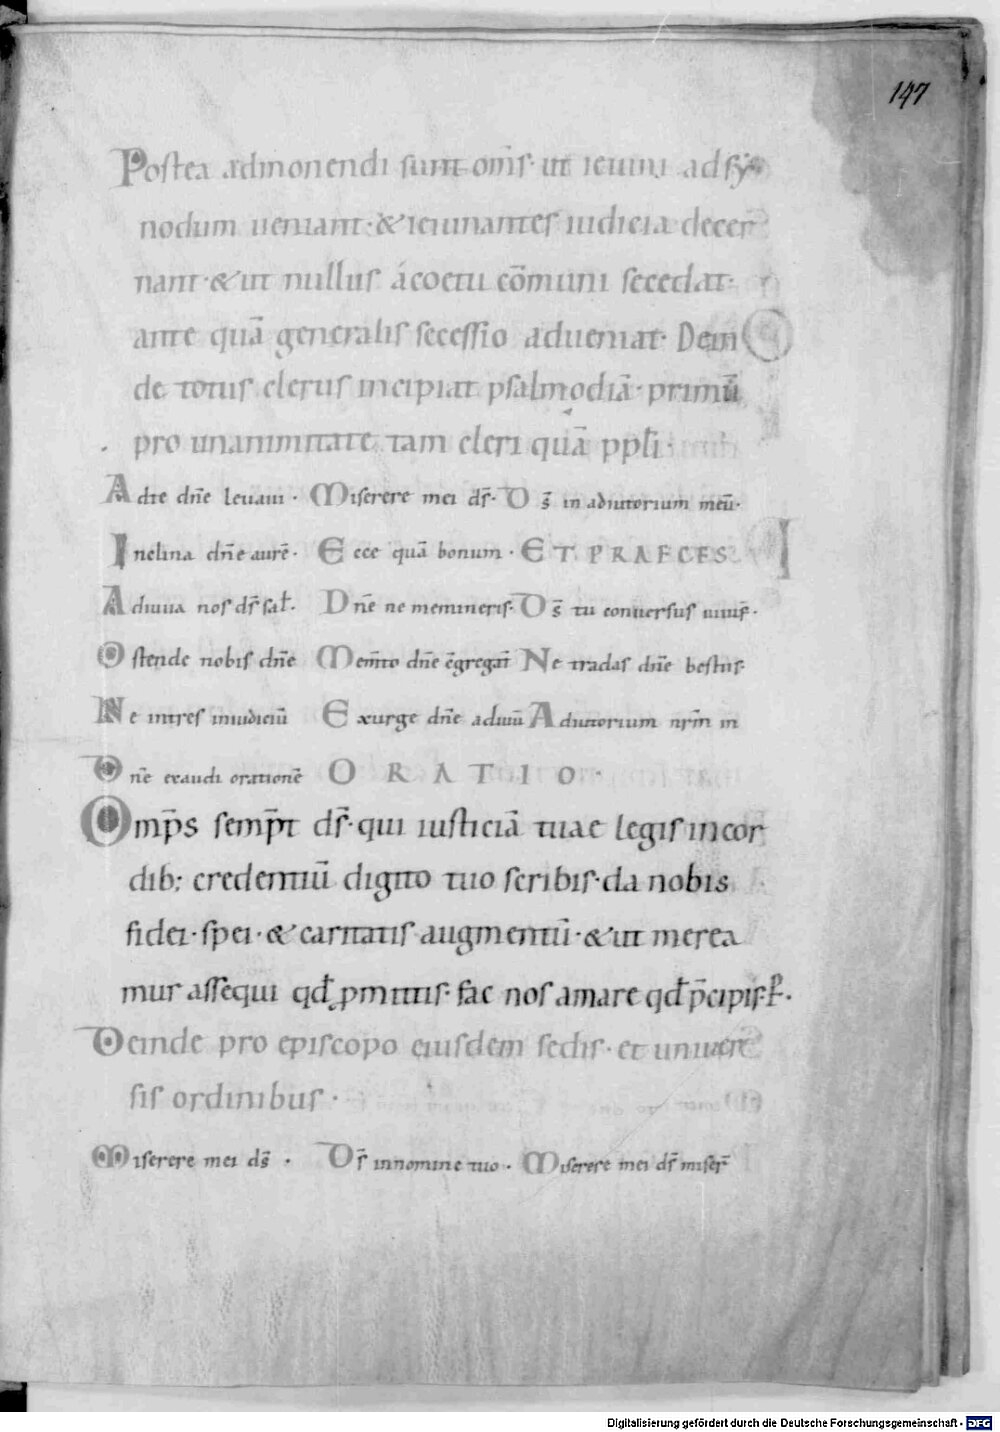 147
Postea admonendi sunt om̄s· ut ieiuni ad sy
nodum ueniant· & ieiunantes iudicia decer
nant· & ut nullus ácoetu cōmuni secedat·
ante quā generalis secessio adueniat· Dein
de totus clerus incipiat psalmodiā· primū
pro unanimitate tam cleri quā ppl̄i·
Adte dn̄e leuaui· Miserere mei ds̄· Ds̄ in adiutorium meū·
Inclina dn̄e aurē· Ecce quā bonum· ET PRAECES
Adiuua nos ds̄ sal̄· Dn̄e ne memineris· Ds̄ tu conuersus uiuif̄·
Ostende nobis dn̄e Mem̄to dn̄e c̄gregat̄ Ne tradas dn̄e bestiis
Ne intres iniudiciū Exurge dn̄e adiuū Adiutorium nr̄m in
Dn̄e exaudi orationē ORATIO·
Omp̄s semp̄t ds̄· qui iusticiā tuae legis incor
dib; credentiū digito tuo scribis· da nobis
fidei· spei· & caritatis augmentū· & ut merea
mur assequi qd̄ ꝓmittis· fac nos amare qd̄ p̄cipis· p̄·
Deinde pro episcopo eiusdem sedis· et uniuer
sis ordinibus·
Miserere mei ds̄· Ds̄ innomine tuo· Miserere mei ds̄ miser̄
Digitalisierung gefördert durch die Deutsche Forschungsgemeinschaft - DFG